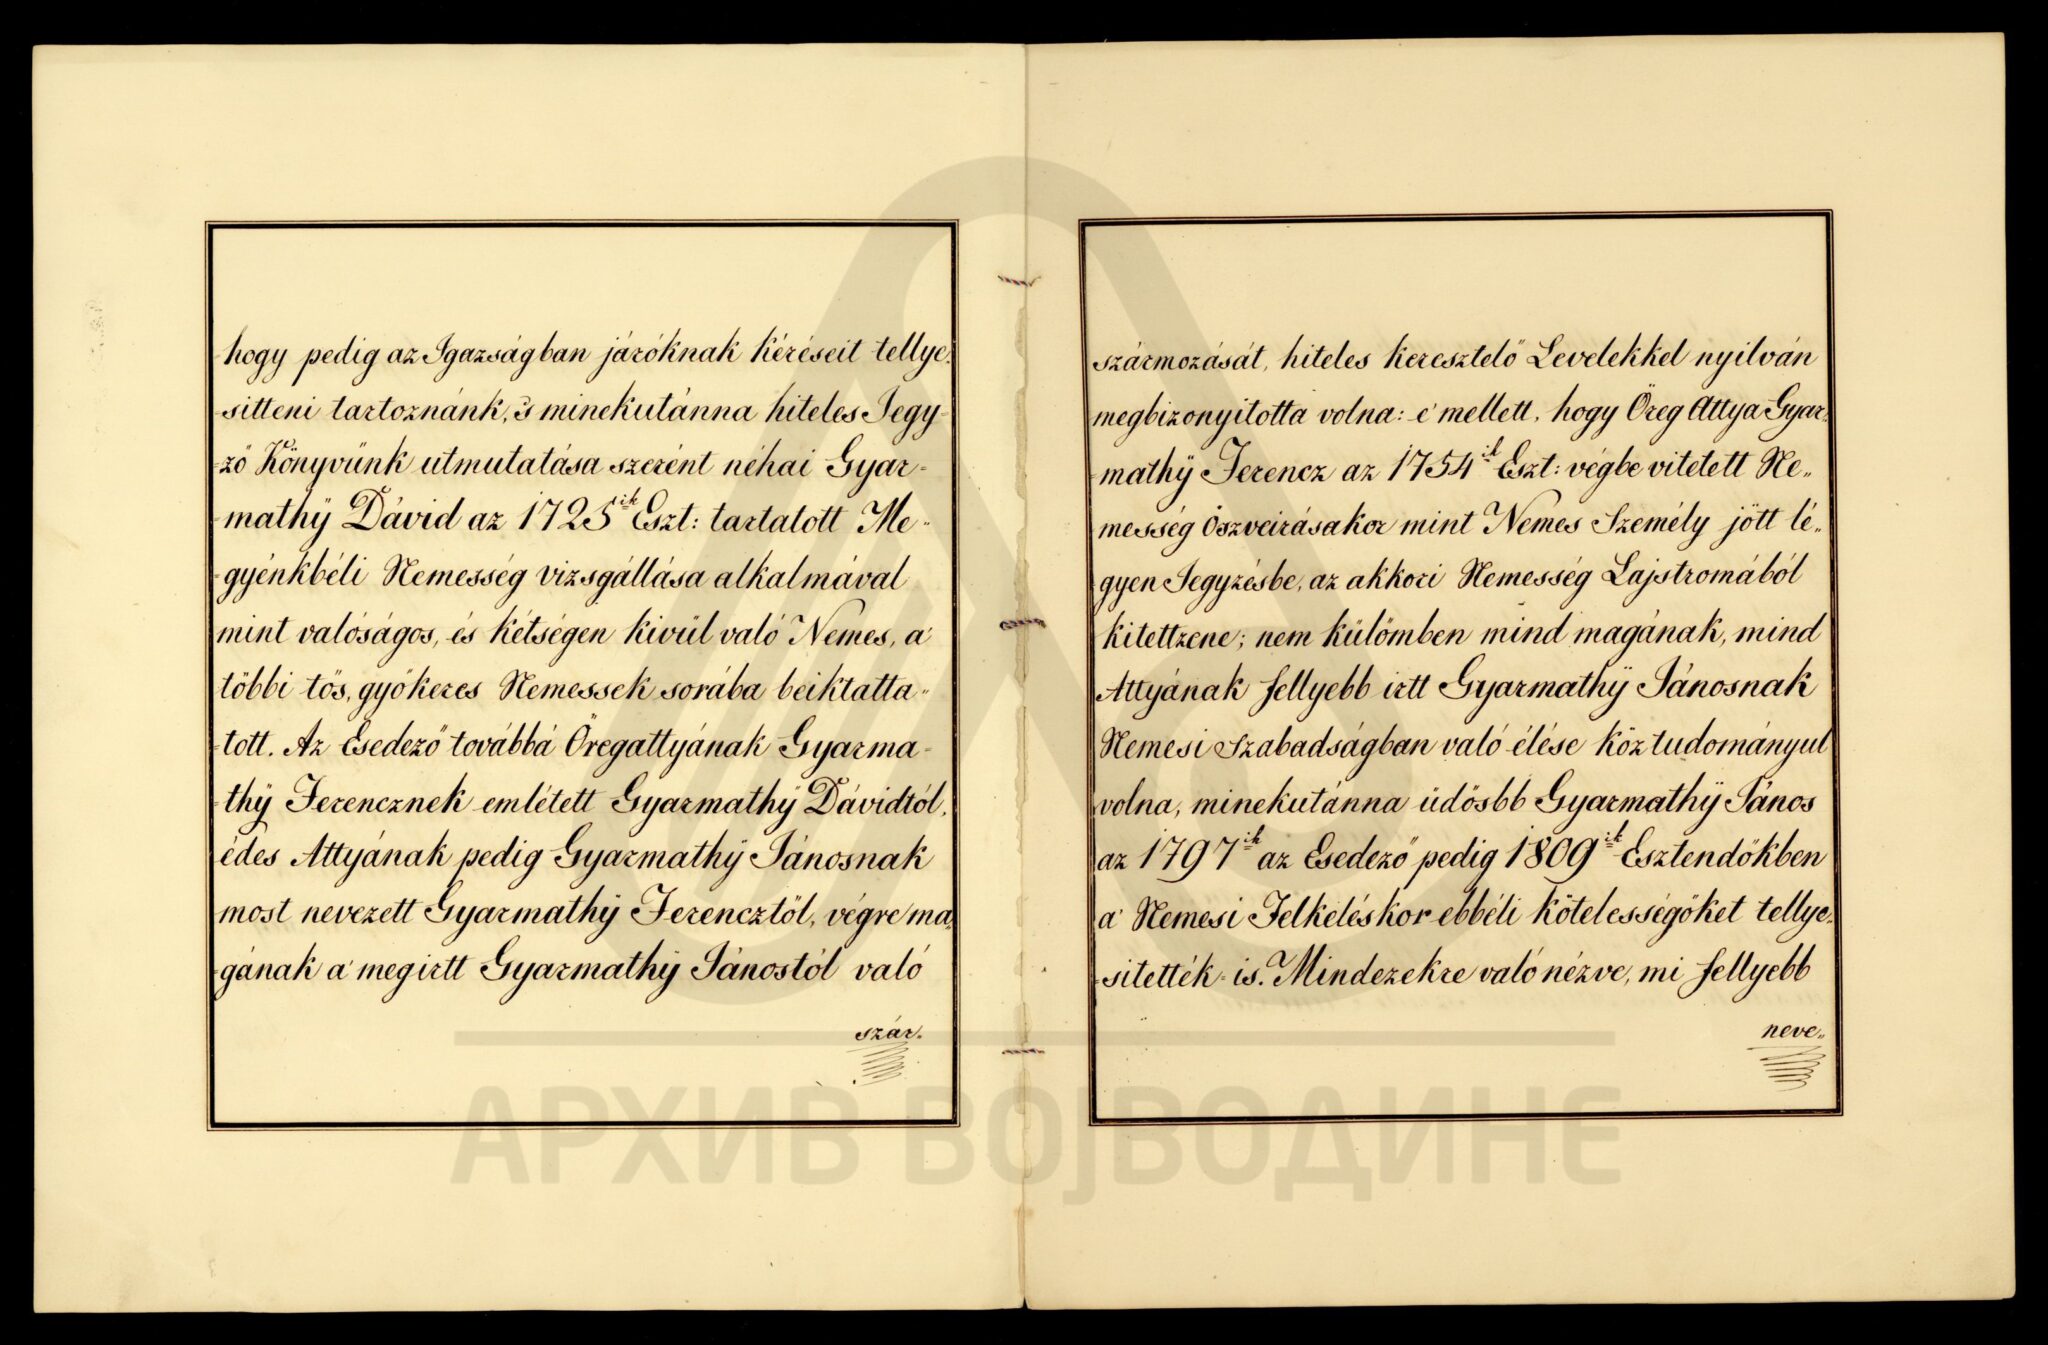 hogy pedig az Igazságban járóknak kéréseit tellye-
sitteni tartoznánk, 's minekutánna hiteles Jegy-
ző Könyvünk utmutatása szerént néhai Gyar-
mathÿ Dávid az 1725ik Eszt: tartatott Me-
gyénkbéli Nemesség vizsgállása alkalmával
mint valóságos, és kétségen kivül való Nemes, a'
többi tös, gyökeres Nemessek sorába beiktatta-
tott. Az Esedező továbbá Öregattyának Gyarma-
thÿ Ferencznek emlétett Gyarmathÿ Dávidtól,
édes Attyának pedig Gyarmathÿ Jánosnak
most nevezett Gyarmathÿ Ferencztöl, végre ma-
gának a' megirtt Gyarmathÿ Jánostól való
szár-
szármozását, hiteles keresztelő Levelekkel nyilván
megbizonyitotta volna: e' mellett, hogy Öreg Attya Gyar-
mathÿ Ferencz az 1754ik Eszt: végbe vitetett Ne-
messég öszveirásakor mint Nemes Személy jött lé-
gyen Jegyzésbe, az akkori Nemesség Lajstromából
kitettzene; nem külömben mind magának, mind
Attyának fellyebb irtt Gyarmathÿ Jánosnak
Nemesi Szabadságban való élése köztudományul
volna, minekutánna üdösbb Gyarmathÿ János
az 1797ik az Esedező pedig 1809ik Esztendökben
a' Nemesi Felkeléskor ebbéli kötelességöket tellye-
sitették is. Mindezekre való nézve, mi fellyebb
neve-
АРХИВ ВОЈВОДИНЕ